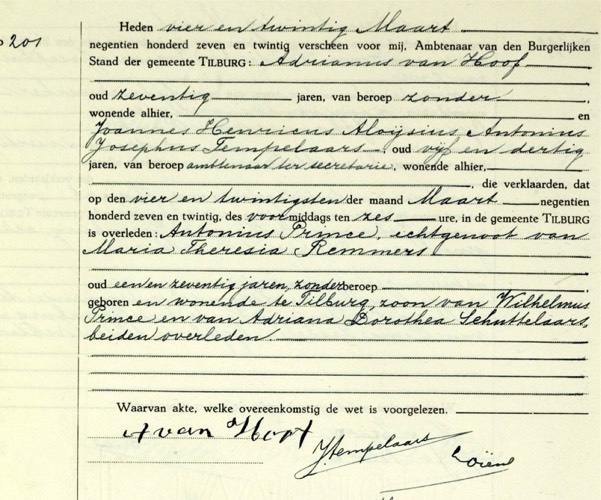 Heden vier en twintig Maart
201
negentien honderd zeven en twintig verscheen voor mij, Ambtenaar van den Burgerlijken
Stand der gemeente TILBURG: Adrianus van Hoof
oud zeventig jaren, van beroep zonder
wonende alhier, en
Joannes Henricus Aloijsius Antonius
Josephus Tempelaars, oud vijf en dertig
jaren, van beroep ambtenaar ter secretarie, wonende alhier,
, die verklaarden, dat
op den vier en twintigsten der maand Maart negentien
honderd zeven en twintig, des voormiddags ten zes ure, in de gemeente TILBURG
is overleden: Antonius Prince, echtgenoot van
Maria Theresia Remmers
oud een en zeventig jaren, zonder beroep,
geboren en wonende te Tilburg, zoon van Wilhelmus
Prince en van Adriana Dorothea Schuttelaars,
beiden overleden.
Waarvan akte, welke overeenkomstig de wet is voorgelezen.
A van Hoof
J Tempelaars